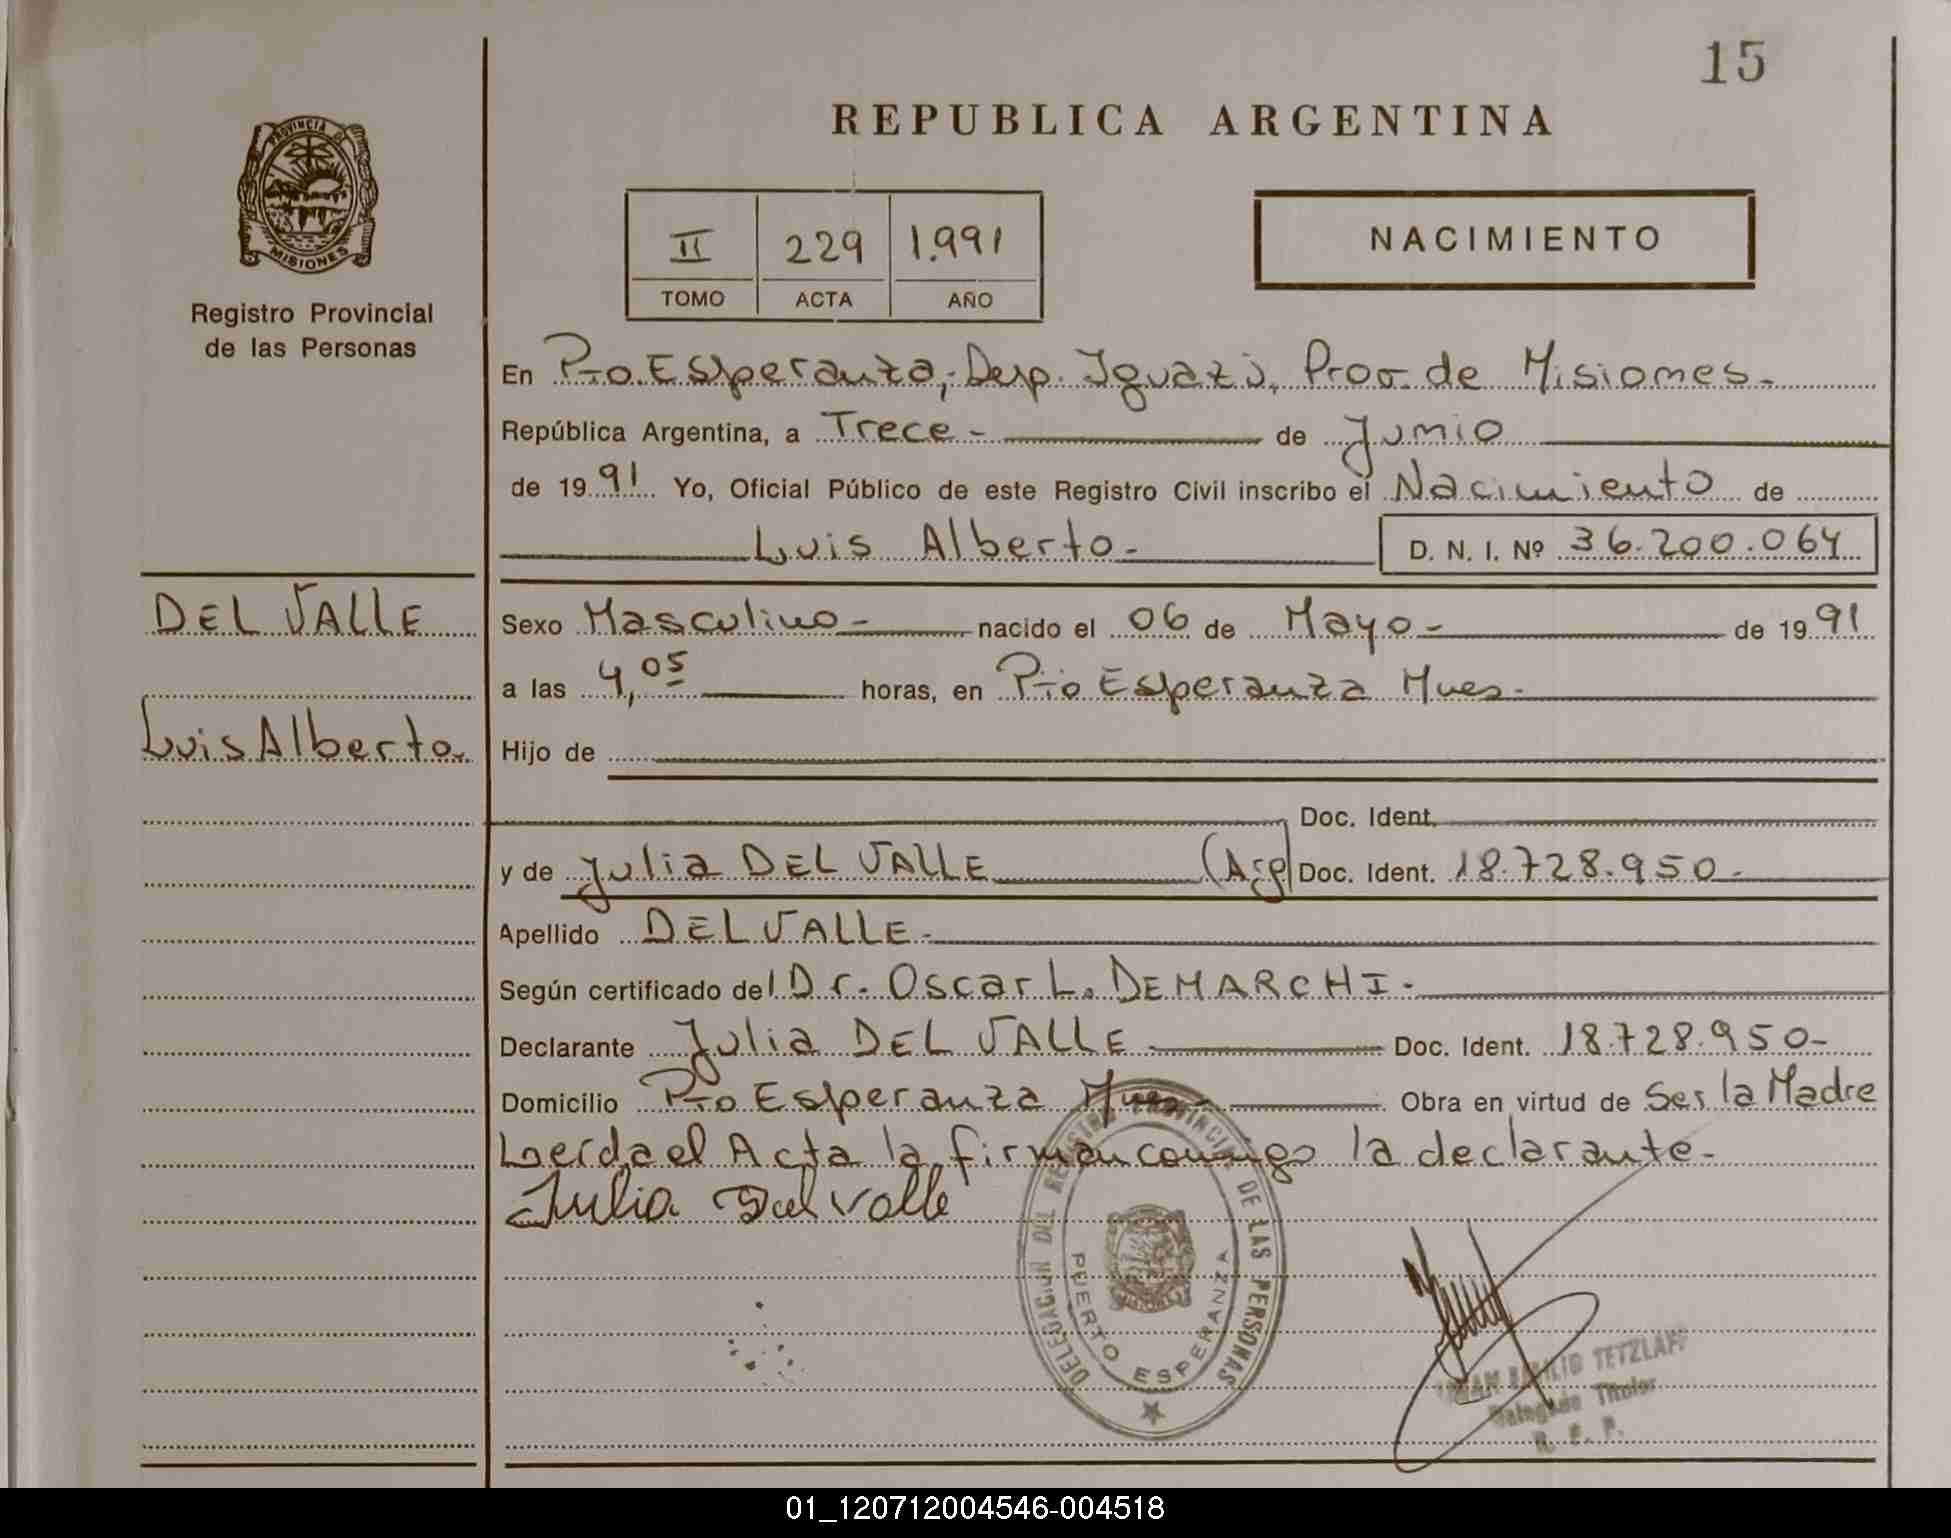 15
REPUBLICA ARGENTINA
PROVINCIA DE
MISIONES
Registro Provincial
de las Personas
II 229 1.991
TOMO ACTA AÑO
NACIMIENTO
En Pto. Esperanza, Dep. Iguazú, Prov. de Misiones.
República Argentina, a Trece - de Junio
de 1991 Yo, Oficial Público de este Registro Civil inscribo el Nacimiento de
Luis Alberto - D. N. I. Nº 36.200.064
DEL VALLE
Luis Alberto.
Sexo Masculino - nacido el 06 de Mayo - de 1991
a las 4,05 horas, en Pto Esperanza Mnes.
Hijo de
Doc. Ident.
y de Julia DEL VALLE (Arg) Doc. Ident. 18.728.950.-
Apellido DEL VALLE.-
Según certificado del Dr. Oscar L. DEMARCHI.-
Declarante Julia DEL VALLE - Doc. Ident. 18.728.950-
Domicilio Pto Esperanza Mnes - Obra en virtud de Ser la Madre
Leída el Acta la firman conmigo la declarante.-
Julia Del Valle
DELEGACION DEL REGISTRO PROVINCIAL DE LAS PERSONAS
PUERTO ESPERANZA
TETZLAFF
Delegado Titular
R. P. P.
01_120712004546-004518